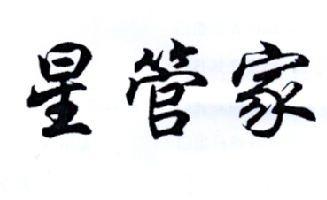 星管家